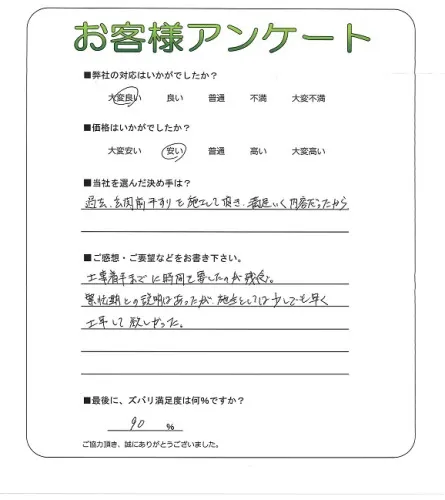 お客様アンケート
■弊社の対応はいかがでしたか?
大変良い 良い 普通 不満 大変不満
■価格はいかがでしたか?
大変安い 安い 普通 高い 大変高い
■当社を選んだ決め手は?
過去、玄関前手すりを施工して頂き、満足いく内容だったから
■ご感想・ご要望などをお書き下さい。
工事着手までに時間を要したのが残念。
繁忙期との説明はあったが、施主としては少しでも早く
工事して欲しかった。
■最後に、ズバリ満足度は何%ですか?
90 %
ご協力頂き、誠にありがとうございました。